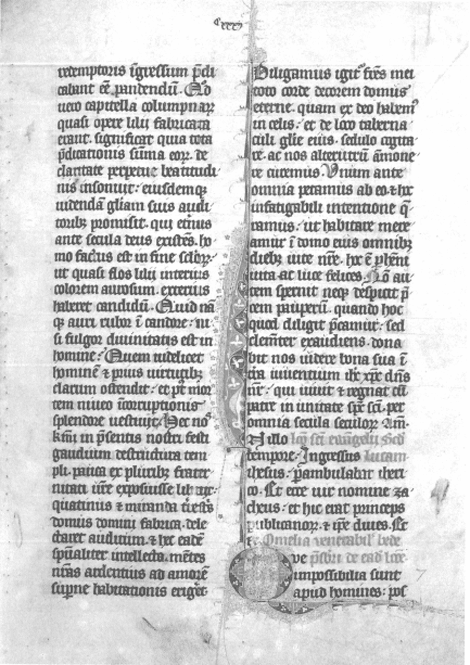 redemptoris īgressum p̄di
cabant eē pandendū. Qđ
vero capitella columpnaꝝ
quasi opere lilij fabricata
erant. significat quia tota
p̄dicationis sūma eoꝝ. de
claritate perpetue beatitudi
nis insonuit: eiusdemqꝫ
videndā gliam suis audi
toribꝫ promisit. qui
ante secula deus existēs. ho
mo factus est in fine sclōꝝ.
ut quasi flos lilij interius
colorem aurosum. exterius
haberet candidū. Quid nā
qꝫ auri rubor ī candore: ni
si fulgor divinitatis est in
homine: Quem videlicet
hominē ⁊ prius virtutibꝫ
clarum ostendit: et pꝰ mor
tem niveo īcorruptionis
splendore vestivit. Hec no
in p̄sentis nostri festi
gaudium de structura tem
pli. pauca ex pluribꝫ frater
nitati vr̄e exposuisse
quatinus ⁊ miranda
domus domini fabrica. dele
ctaret auditum. ⁊ hec eadē
sp̄ualiter intellecta. mētes
nr̄as attentius ad amorē
supne habitationis erigēt.
Diligamus igitᷣ fr̄es mei
toto corde decorem domus
eterne. quam ex deo habemꝰ
in celis: et de loco taberna
culi glie eius. sedulo cogita
te. ac nos alterutrū āmone
re curemus. Unum ante
omnia petamus ab eo. ⁊ hx̄
infatigabili intentione q̄
ramus: ut habitare mere
amur ī domo eius omnibꝫ
diebꝫ vite nr̄e. hx̄ ē phēni
vita ac luce felices. Nō au
tem spernit neqꝫ despicit p̄
cem pauperū. quando hoc
quod diligit p̄camur: sed
clemēter exaudiens. dona
bit nos videre bona sua ī
tr̄a viventium ihc xp̄c dn̄s
nr̄: qui vivit ⁊ regnat cū
patre in unitate sp̄c sc̄i. per
omnia secula seculoꝝ. Am̄.
In illo lc̄o sc̄i evangelij Scd̄
tempore. Ingressus lucam
ihesus: p̄ambulabat iheri
co. Et ecce vir nomine za
cheus: et hic erat princeps
publicanoꝝ. ⁊ ip̄e dives. Et
re. Omelia venerabil' bede
ve p̄sbri de ead' lc̄oe
impossibilia sunt
apud homines: pos